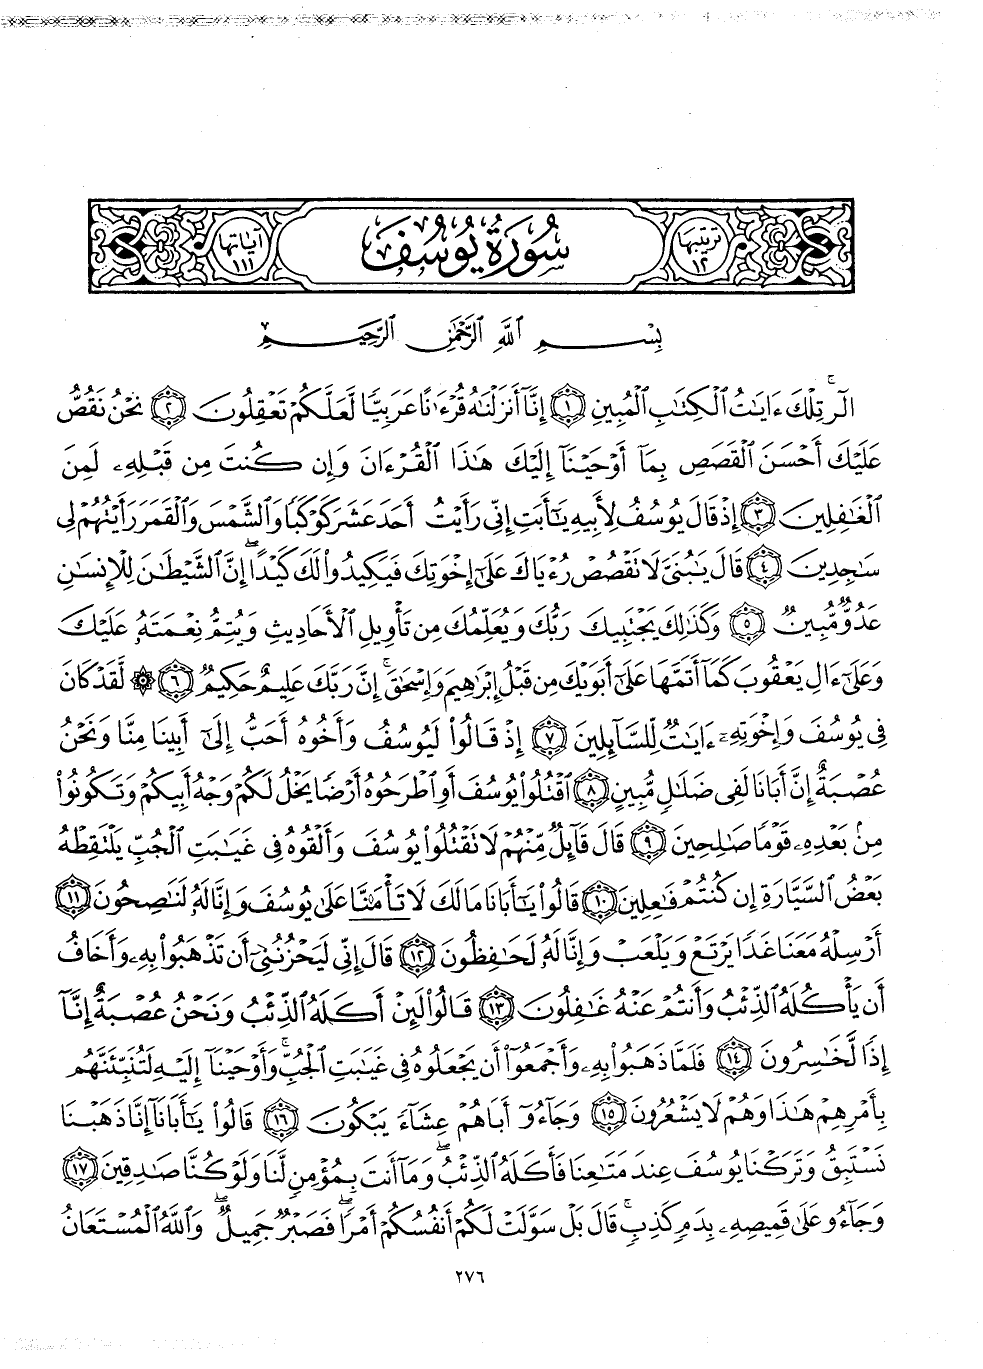 ترتيبها ١٢ سُورَةُ يُوسُفَ آياتها ١١١
بِسْمِ ٱللَّهِ ٱلرَّحْمَٰنِ ٱلرَّحِيمِ
الٓرۚ تِلْكَ ءَايَٰتُ ٱلْكِتَٰبِ ٱلْمُبِينِ ١ إِنَّآ أَنزَلْنَٰهُ قُرْءَٰنًا عَرَبِيًّا لَّعَلَّكُمْ تَعْقِلُونَ ٢ نَحْنُ نَقُصُّ
عَلَيْكَ أَحْسَنَ ٱلْقَصَصِ بِمَآ أَوْحَيْنَآ إِلَيْكَ هَٰذَا ٱلْقُرْءَانَ وَإِن كُنتَ مِن قَبْلِهِۦ لَمِنَ
ٱلْغَٰفِلِينَ ٣ إِذْ قَالَ يُوسُفُ لِأَبِيهِ يَٰٓأَبَتِ إِنِّى رَأَيْتُ أَحَدَ عَشَرَ كَوْكَبًا وَٱلشَّمْسَ وَٱلْقَمَرَ رَأَيْتُهُمْ لِى
سَٰجِدِينَ ٤ قَالَ يَٰبُنَىَّ لَا تَقْصُصْ رُءْيَاكَ عَلَىٰٓ إِخْوَتِكَ فَيَكِيدُوا۟ لَكَ كَيْدًاۖ إِنَّ ٱلشَّيْطَٰنَ لِلْإِنسَٰنِ
عَدُوٌّ مُّبِينٌ ٥ وَكَذَٰلِكَ يَجْتَبِيكَ رَبُّكَ وَيُعَلِّمُكَ مِن تَأْوِيلِ ٱلْأَحَادِيثِ وَيُتِمُّ نِعْمَتَهُۥ عَلَيْكَ
وَعَلَىٰٓ ءَالِ يَعْقُوبَ كَمَآ أَتَمَّهَا عَلَىٰٓ أَبَوَيْكَ مِن قَبْلُ إِبْرَٰهِيمَ وَإِسْحَٰقَۚ إِنَّ رَبَّكَ عَلِيمٌ حَكِيمٌ ٦ ۞ لَّقَدْ كَانَ
فِى يُوسُفَ وَإِخْوَتِهِۦٓ ءَايَٰتٌ لِّلسَّآئِلِينَ ٧ إِذْ قَالُوا۟ لَيُوسُفُ وَأَخُوهُ أَحَبُّ إِلَىٰٓ أَبِينَا مِنَّا وَنَحْنُ
عُصْبَةٌ إِنَّ أَبَانَا لَفِى ضَلَٰلٍ مُّبِينٍ ٨ ٱقْتُلُوا۟ يُوسُفَ أَوِ ٱطْرَحُوهُ أَرْضًا يَخْلُ لَكُمْ وَجْهُ أَبِيكُمْ وَتَكُونُوا۟
مِنۢ بَعْدِهِۦ قَوْمًا صَٰلِحِينَ ٩ قَالَ قَآئِلٌ مِّنْهُمْ لَا تَقْتُلُوا۟ يُوسُفَ وَأَلْقُوهُ فِى غَيَٰبَتِ ٱلْجُبِّ يَلْتَقِطْهُ
بَعْضُ ٱلسَّيَّارَةِ إِن كُنتُمْ فَٰعِلِينَ ١٠ قَالُوا۟ يَٰٓأَبَانَا مَالَكَ لَا تَأْمَ۫نَّا عَلَىٰ يُوسُفَ وَإِنَّا لَهُۥ لَنَٰصِحُونَ ١١
أَرْسِلْهُ مَعَنَا غَدًا يَرْتَعْ وَيَلْعَبْ وَإِنَّا لَهُۥ لَحَٰفِظُونَ ١٢ قَالَ إِنِّى لَيَحْزُنُنِىٓ أَن تَذْهَبُوا۟ بِهِۦ وَأَخَافُ
أَن يَأْكُلَهُ ٱلذِّئْبُ وَأَنتُمْ عَنْهُ غَٰفِلُونَ ١٣ قَالُوا۟ لَئِنْ أَكَلَهُ ٱلذِّئْبُ وَنَحْنُ عُصْبَةٌ إِنَّآ
إِذًا لَّخَٰسِرُونَ ١٤ فَلَمَّا ذَهَبُوا۟ بِهِۦ وَأَجْمَعُوٓا۟ أَن يَجْعَلُوهُ فِى غَيَٰبَتِ ٱلْجُبِّۚ وَأَوْحَيْنَآ إِلَيْهِ لَتُنَبِّئَنَّهُم
بِأَمْرِهِمْ هَٰذَا وَهُمْ لَا يَشْعُرُونَ ١٥ وَجَآءُوٓ أَبَاهُمْ عِشَآءً يَبْكُونَ ١٦ قَالُوا۟ يَٰٓأَبَانَآ إِنَّا ذَهَبْنَا
نَسْتَبِقُ وَتَرَكْنَا يُوسُفَ عِندَ مَتَٰعِنَا فَأَكَلَهُ ٱلذِّئْبُۖ وَمَآ أَنتَ بِمُؤْمِنٍ لَّنَا وَلَوْ كُنَّا صَٰدِقِينَ ١٧
وَجَآءُو عَلَىٰ قَمِيصِهِۦ بِدَمٍ كَذِبٍۚ قَالَ بَلْ سَوَّلَتْ لَكُمْ أَنفُسُكُمْ أَمْرًاۖ فَصَبْرٌ جَمِيلٌۖ وَٱللَّهُ ٱلْمُسْتَعَانُ
٢٧٦